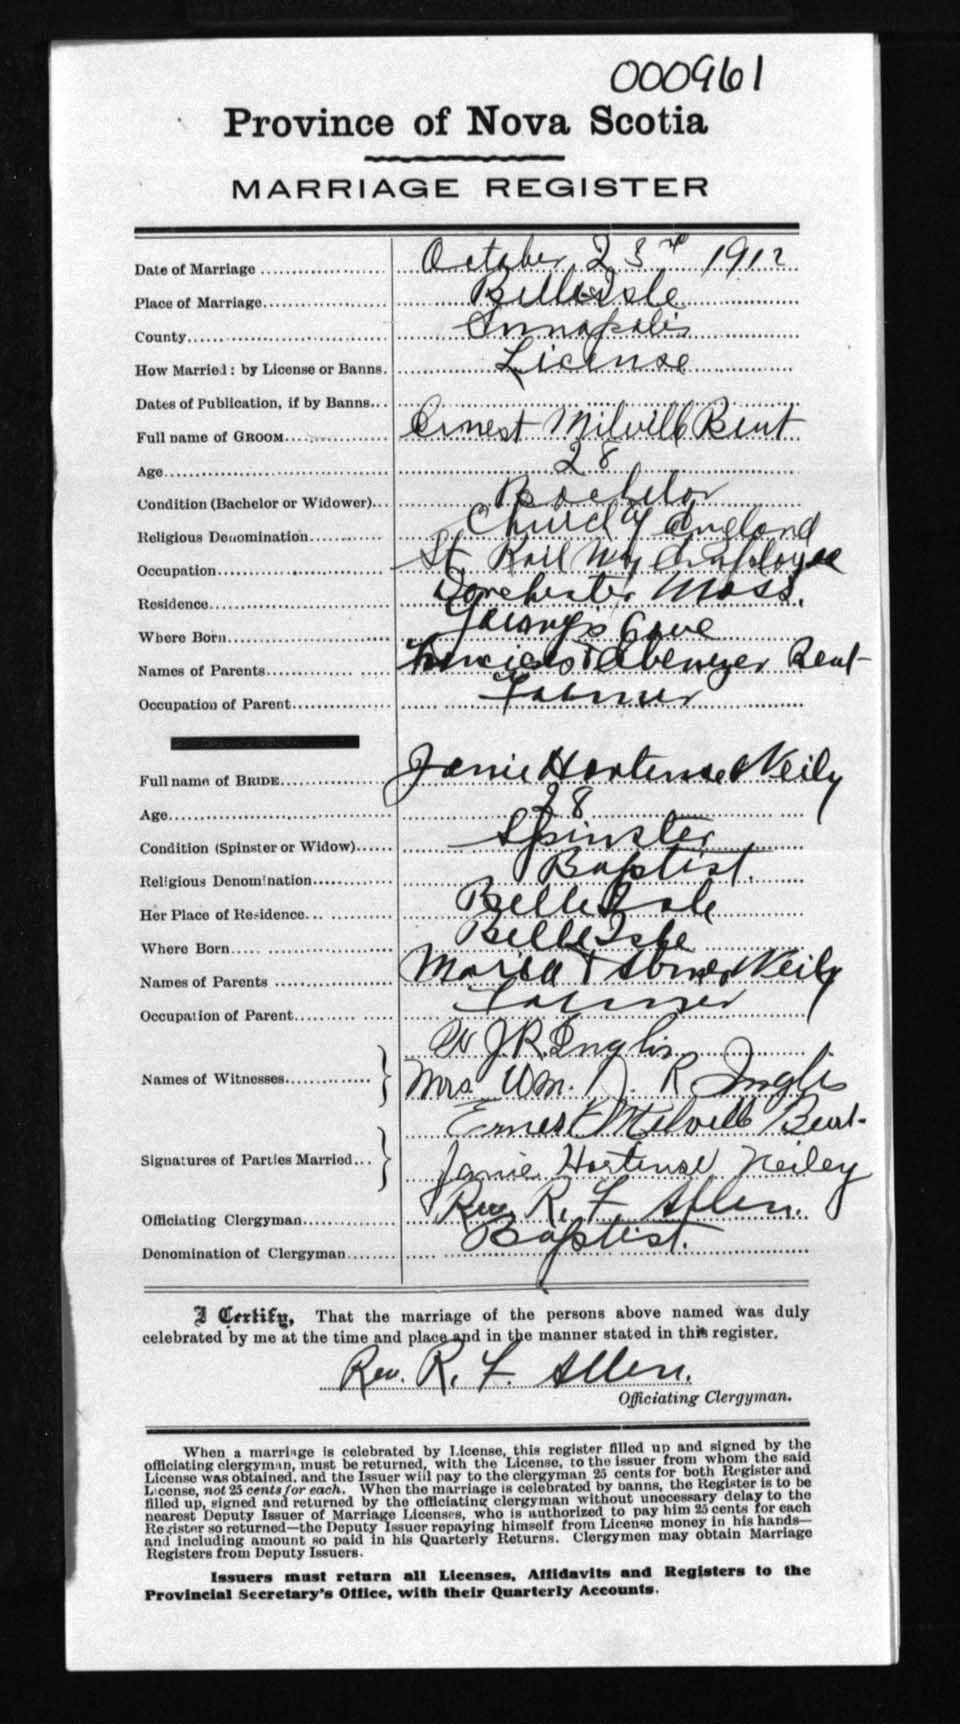 000961
Province of Nova Scotia
MARRIAGE REGISTER
Date of Marriage October 23rd 1912
Place of Marriage Belle Isle
County Annapolis
How Married: by License or Banns. License
Dates of Publication, if by Banns
Full name of GROOM Ernest Milvill Bent
Age 28
Condition (Bachelor or Widower) Bachelor
Religious Denomination Church of England
Occupation St Rail Way Employee
Residence Dorchester Mass.
Where Born Youngs Cove
Names of Parents & Ebenezer Bent
Occupation of Parent Farmer
Full name of BRIDE Janie Hortense Neily
Age 28
Condition (Spinster or Widow) Spinster
Religious Denomination Baptist.
Her Place of Residence Belle Isle
Where Born Belle Isle
Names of Parents Maria & Abner Neily
Occupation of Parent Farmer
W J. R. Inglis
Names of Witnesses Mrs Wm. J. R. Inglis
Ernest Milvill Bent
Signatures of Parties Married Janie Hortense Neiley
Officiating Clergyman Rev. R. F. Allen.
Denomination of Clergyman Baptist.
I Certify, That the marriage of the persons above named was duly
celebrated by me at the time and place and in the manner stated in this register.
Rev. R. F. Allen.
Officiating Clergyman.
When a marriage is celebrated by License, this register filled up and signed by the
officiating clergyman, must be returned, with the License, to the issuer from whom the said
License was obtained, and the Issuer will pay to the clergyman 25 cents for both Register and
License, not 25 cents for each. When the marriage is celebrated by banns, the Register is to be
filled up, signed and returned by the officiating clergyman without unecessary delay to the
nearest Deputy Issuer of Marriage Licenses, who is authorized to pay him 25 cents for each
Register so returned—the Deputy Issuer repaying himself from License money in his hands—
and including amount so paid in his Quarterly Returns. Clergymen may obtain Marriage
Registers from Deputy Issuers.
Issuers must return all Licenses, Affidavits and Registers to the
Provincial Secretary's Office, with their Quarterly Accounts.